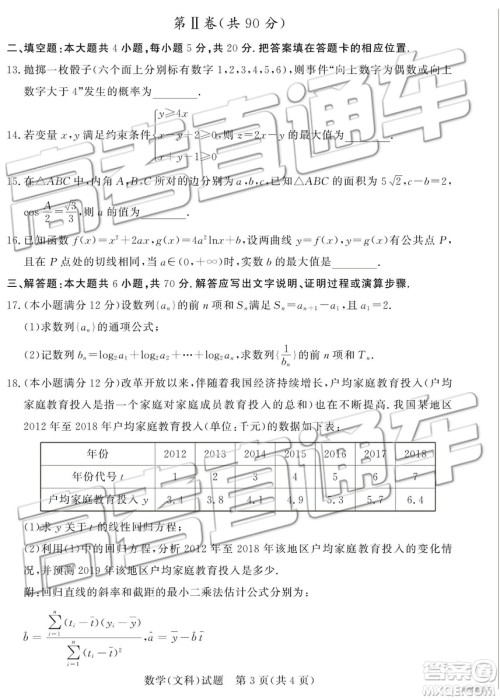 第Ⅱ卷(共90分)
二、填空题:本大题共4小题,每小题5分,共20分.把答案填在答题卡的相应位置.
13.抛掷一枚骰子(六个面上分别标有数字1,2,3,4,5,6),则事件“向上数字为偶数或向上
数字大于4”发生的概率为________.
14.若变量x,y满足约束条件{y≥4x
x-y-2≥0,则z=2x-y的最大值为
x+y-1≥0
15.在△ABC中,内角A,B,C所对的边分别为a,b,c,已知△ABC的面积为5√2,c-b=2,
cos A/2=√3/3,则a的值为________.
16.已知函数f(x)=x²+2ax,g(x)=4a²lnx+b,设两曲线y=f(x),y=g(x)有公共点P,
且在P点处的切线相同,当a∈(0,+∞)时,实数b的最大值为________.
三、解答题:本大题共6小题,共70分.解答应写出文字说明、证明过程或演算步骤.
17.(本小题满分12分)设数列{aₙ}的前n项和为Sₙ,已知Sₙ=aₙ₊₁-a₁,且
(1)求数列{aₙ}的通项公式;
(2)记数列bₙ=log₂a₁+log₂a₂+…+log₂aₙ,求数列{1/bₙ}的前n项和Tₙ.
18.(本小题满分12分)改革开放以来,伴随着我国经济持续增长,户均家庭教育投入(户均
家庭教育投入是指一个家庭对家庭成员教育投入的总和)也在不断提高.我国某地区
2012年至2018年户均家庭教育投入(单位:千元)的数据如下表:
年份 2012 2013 2014 2015 2016 2017 2018
年份代号t 1 2 3 4 5 6 7
户均家庭教育投入y 3.4 3.8 4.1 4.9 5.3 5.7 6.4
(1)求y关于t的线性回归方程;
(2)利用(1)中的回归方程,分析2012年至2018年该地区户均家庭教育投入的变化情
况,并预测2019年该地区户均家庭教育投入是多少.
附:回归直线的斜率和截距的最小二乘法估计公式分别为:
b̂=∑ⁿᵢ₌₁(tᵢ-t̄)(yᵢ-ȳ)/∑ⁿᵢ₌₁(tᵢ-t̄)²,â=ȳ-b̂t̄
数学(文科)试题 第3页(共4页)
高考直通车
高考直通车